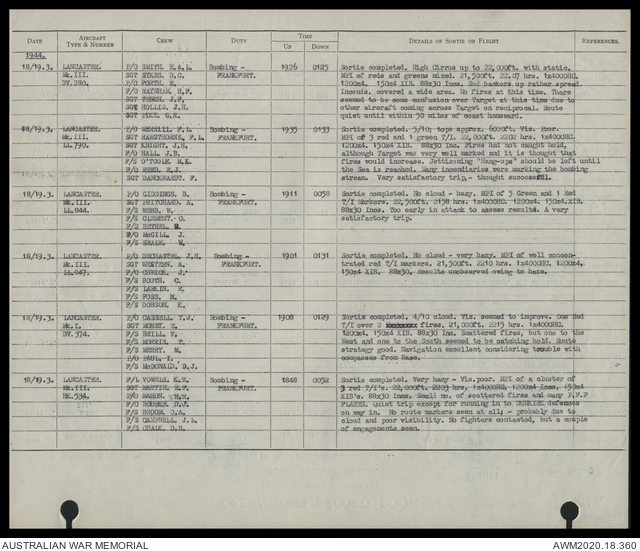 DATE AIRCRAFT TYPE & NUMBER CREW DUTY TIME UP DOWN DETAILS OF SORTIE OR FLIGHT REFERENCES.
1944.
18/19.3. LANCASTER. P/O SMITH, E.A.L. Bombing - 1926 0125 Sortie completed. High Cirrus up to 22,000ft. with static.
Mk.III. SGT SYKES, D.C. FRANKFURT. MPI of reds and greens mixed. 21,500ft. 22.07 hrs. 1x4000HC.
DV.280. F/O FORTH, E. 1200x4. 150x4 XIB. 88x30 Inc. Red markers up rather spread.
F/O RAYNHAM, H.F. Incends. covered a wide area. No fires at this time. There
SGT FENCH, J.F. seemed to be some confusion over Target at this time due to
SGT HOLLIS, J.H. other aircraft coming across Target on reciprocal. Route
SGT PIKE, G.R. quiet until within 50 miles of coast homeward.
18/19.3. LANCASTER. P/O MERRILL, F.L. Bombing - 1935 0133 Sortie completed. 5/10; tops approx. 6000ft. Vis. Poor.
Mk.III. SGT HAWTHORNE, F.L. FRANKFURT. MPI of 3 red and 1 green T/I. 22,000ft. 2202 hrs. 1x4000HC.
LL.790. SGT KNIGHT, J.H. 1200x4. 150x4 XIB. 88x30 Ins. Fires had not caught hold,
F/O HALL, J.B. although Target was very well marked and it is thought that
F/S O'TOOLE, M.K. fires would increase. Jettisoning "Hang-ups" should be left until
F/O REED, E.J. the Sea is reached. Many incendiaries were marking the bombing
SGT stream. Very satisfactory trip,- thought successful.
18/19.3. LANCASTER. P/O GIDDINGS, B. Bombing - 1911 0058 Sortie completed. No cloud - hazy. MPI of 5 Green and 1 Red
Mk.III. SGT PRITCHARD, A. FRANKFURT. T/I Markers. 22,500ft. 2158 hrs. 1x4000HC. 1200x4. 150x4.XIB.
LL.844. F/S WEBB, W. 88x30 Incs. Too early in attack to assess results. A very
F/S CLEMENT, C. satisfactory trip.
F/S BETHEL, R.
F/O McGILL, J.
F/S SEALE, W.
18/19.3. LANCASTER. P/O DECHASTEL, J.H. Bombing - 1901 0131 Sortie completed. No cloud - very hazy. MPI of well concen-
Mk.III. SGT WESTERN, A. FRANKFURT. trated red T/I markers. 21,500ft. 2210 hrs. 1x4000HC. 1200x4.
LL.847. F/O J. 150x4 XIB. 88x30. Results unobserved owing to haze.
F/S BOOTH, C.
F/S LARKIN, R.
F/S FOSS, M.
F/S DOBSON, K.
18/19.3. LANCASTER. P/O CASSELL, T.J. Bombing - 1908 0129 Sortie completed. 4/10 cloud. Vis. seemed to improve. One Red
Mk.I. SGT MOREY, E. FRANKFURT. T/I over 2 fires. 21,000ft. 2215 hrs. 1x4000HC.
DV.374. F/S BRILL, V. 1200x4. 150x4 XIB. 88x30 Ins. Scattered fires, but one to the
F/S MORRIS, T. West and one to the South seemed to be catching hold. Route
F/S MERRY, M. strategy good. Navigation excellent considering trouble with
F/O PAUL, I. compasses from Base.
F/S McDONALD, D.J.
18/19.3. LANCASTER. F/L VOWELS, K.E. Bombing - 1848 0052 Sortie completed. Very hazy - Vis.poor. MPI of a cluster of
Mk.III. SGT MARTIN, E.F. FRANKFURT. 3 red T/I's. 22,000ft. 2203 hrs. 1x4000HC. 1200x4 Incs. 150x4
HK.534. F/O MAHON, H.H. XIB's. 88x30 Incs. Small no. of scattered fires and many P.F.F
F/O D.J. FLARES. Quiet trip except for running in to DUNKIRK defences
F/S BROOM, D.A. on way in. No route markers seen at all; - probably due to
F/S CAMPBELL, J.L. cloud and poor visibility. No fighters contacted, but a couple
F/S CHALK, D.B. of engagements seen.
AUSTRALIAN WAR MEMORIAL AWM2020.18.360